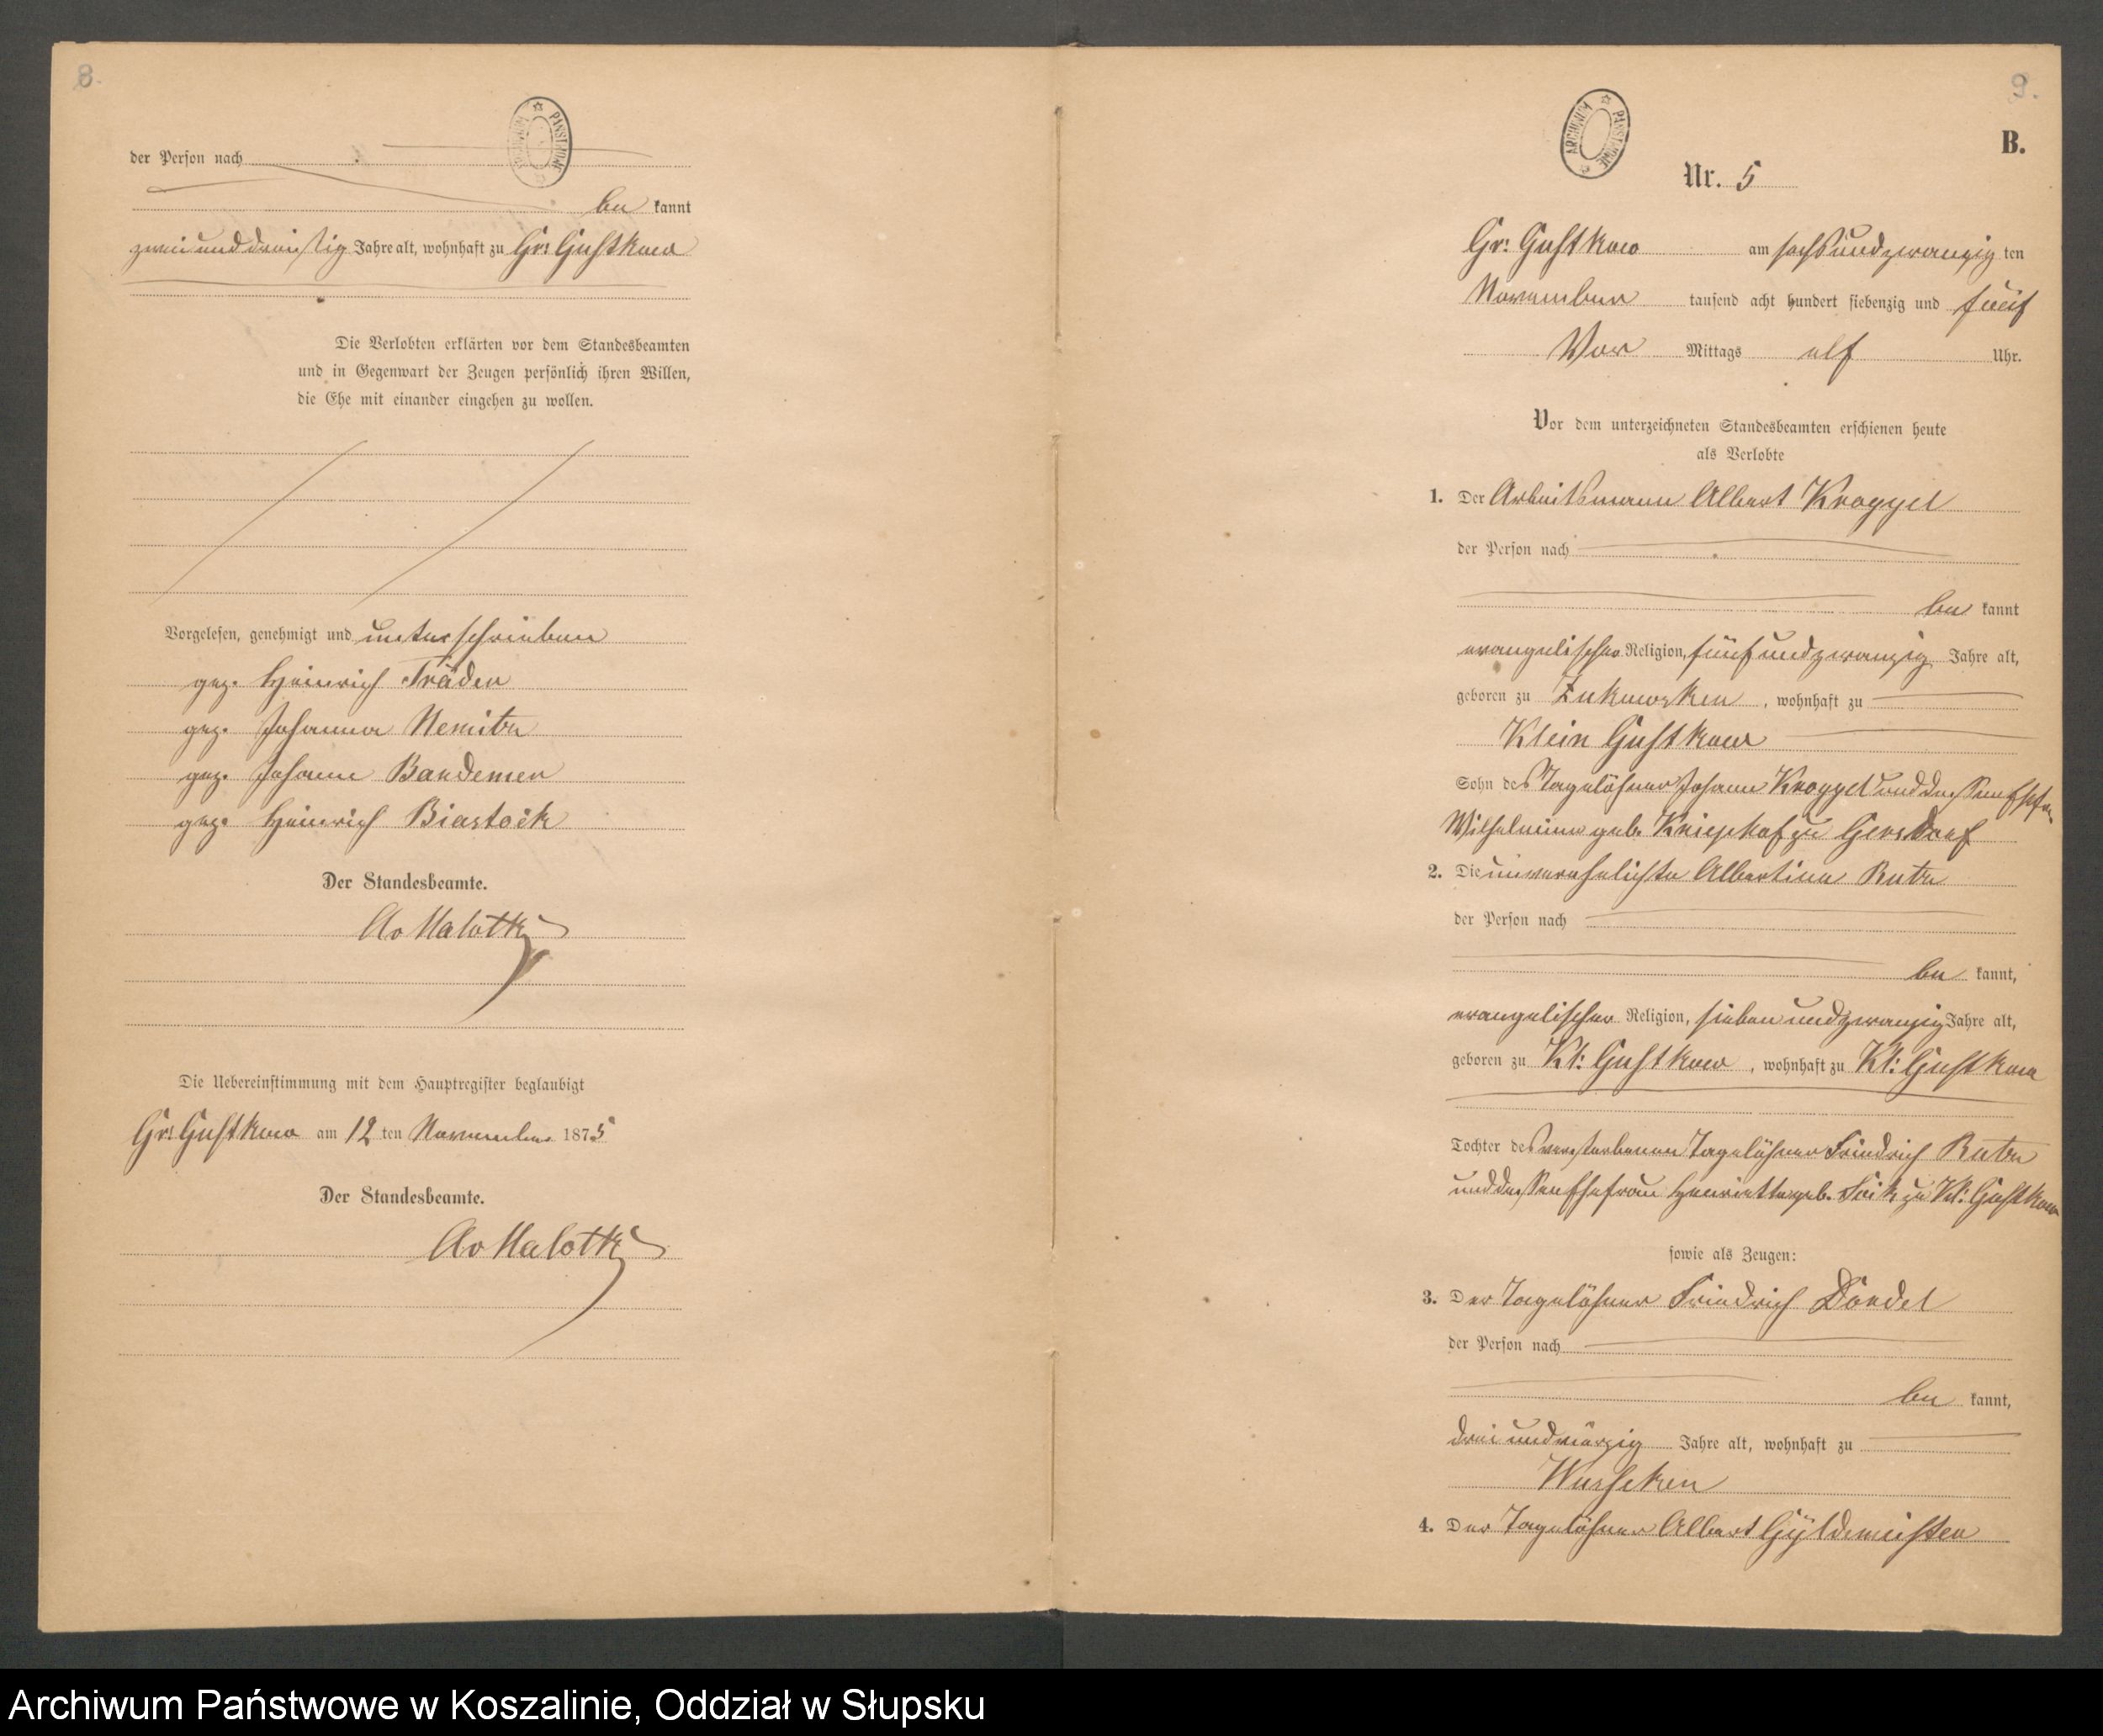 8.
ARCHIWUM PAŃSTWOWE
der Person nach
be kannt
zweiunddreißig Jahre alt, wohnhaft zu Gr: Gustkow
Die Verlobten erklärten vor dem Standesbeamten
und in Gegenwart der Zeugen persönlich ihren Willen,
die Ehe mit einander eingehen zu wollen.
Vorgelesen, genehmigt und unterschrieben
gez. Heinrich Träder
gez. Johanna Nemitz
gez. Johann Bandemer
gez. Heinrich Biastock
Der Standesbeamte.
Av Malottki
Die Uebereinstimmung mit dem Hauptregister beglaubigt
Gr: Gustkow am 12 ten November 1875
Der Standesbeamte.
Av Malottki
9.
ARCHIWUM PAŃSTWOWE
B.
Nr. 5
Gr: Gustkow am sechsundzwanzig ten
November tausend acht hundert siebenzig und fünf
Vor Mittags elf Uhr.
Vor dem unterzeichneten Standesbeamten erschienen heute
als Verlobte
1. Der Arbeitsmann Albert Kroggel
der Person nach
be kannt
evangelischer Religion, fünfundzwanzig Jahre alt,
geboren zu Zukowken, wohnhaft zu
Klein Gustkow
Sohn des Tagelöhner Johann Kroggel und dessen Ehefrau
Wilhelmine geb. Kniephof zu Gersdorf
2. Die unverehelichte Albertine Butz
der Person nach
be kannt,
evangelischer Religion, siebenundzwanzig Jahre alt,
geboren zu Kl: Gustkow, wohnhaft zu Kl: Gustkow
Tochter des verstorbenen Tagelöhner Friedrich Butz
und dessen Ehefrau Henriette geb. Fick zu Kl: Gustkow
sowie als Zeugen:
3. Der Tagelöhner Friedrich
der Person nach
be kannt,
dreiundvierzig Jahre alt, wohnhaft zu
Wusseken
4. Der Tagelöhner Albert Gyldemeister
Archiwum Państwowe w Koszalinie, Oddział w Słupsku